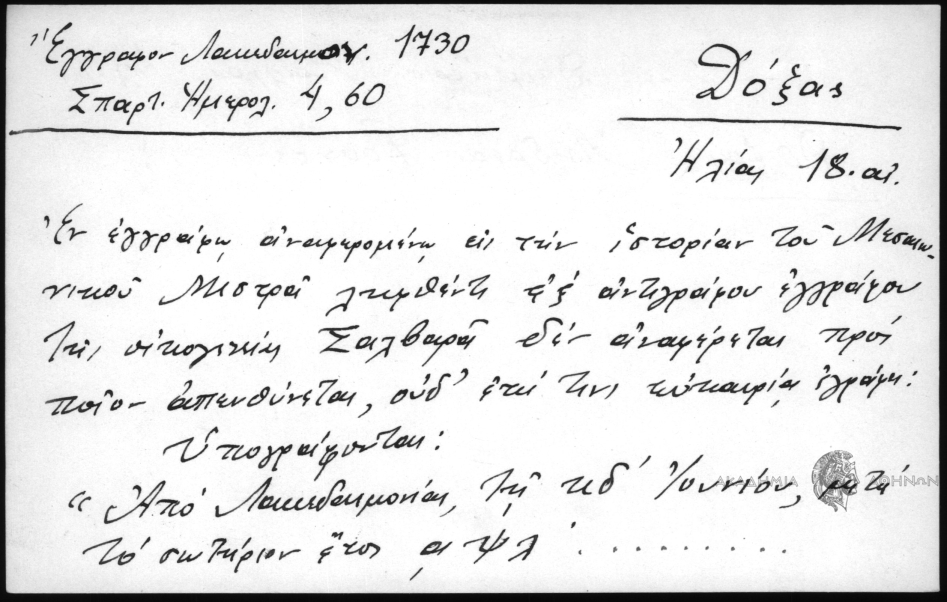 Ἔγγραφον Λακεδαιμον. 1730
Σπαρτ. Ἡμερολ. 4, 60
Δόξας
Ἠλίας 18. αἰ.
Ἐν ἐγγράφῳ ἀναφερομένῳ εἰς τὴν ἱστορίαν τοῦ Μεσαιω-
νικοῦ Μυστρᾶ ληφθέντι ἐξ ἀντιγράφου ἐγγράφου
τῆς οἰκογενείας Σαλβαρᾶ δὲν ἀναφέρεται πρὸς
ποῖον ἀπευθύνεται, οὐδ' ἐπὶ τίνι εὐκαιρίᾳ ἐγράφη:
Ὑπογράφονται:
« Ἀπὸ Λακεδαιμονίας, τῇ κδ' Ἰουνίου, μετὰ
τὸ σωτήριον ἔτος ͵αψλ' . . . . . . . . .
ΑΚΑΔΗΜΙΑ ΑΘΗΝΩΝ